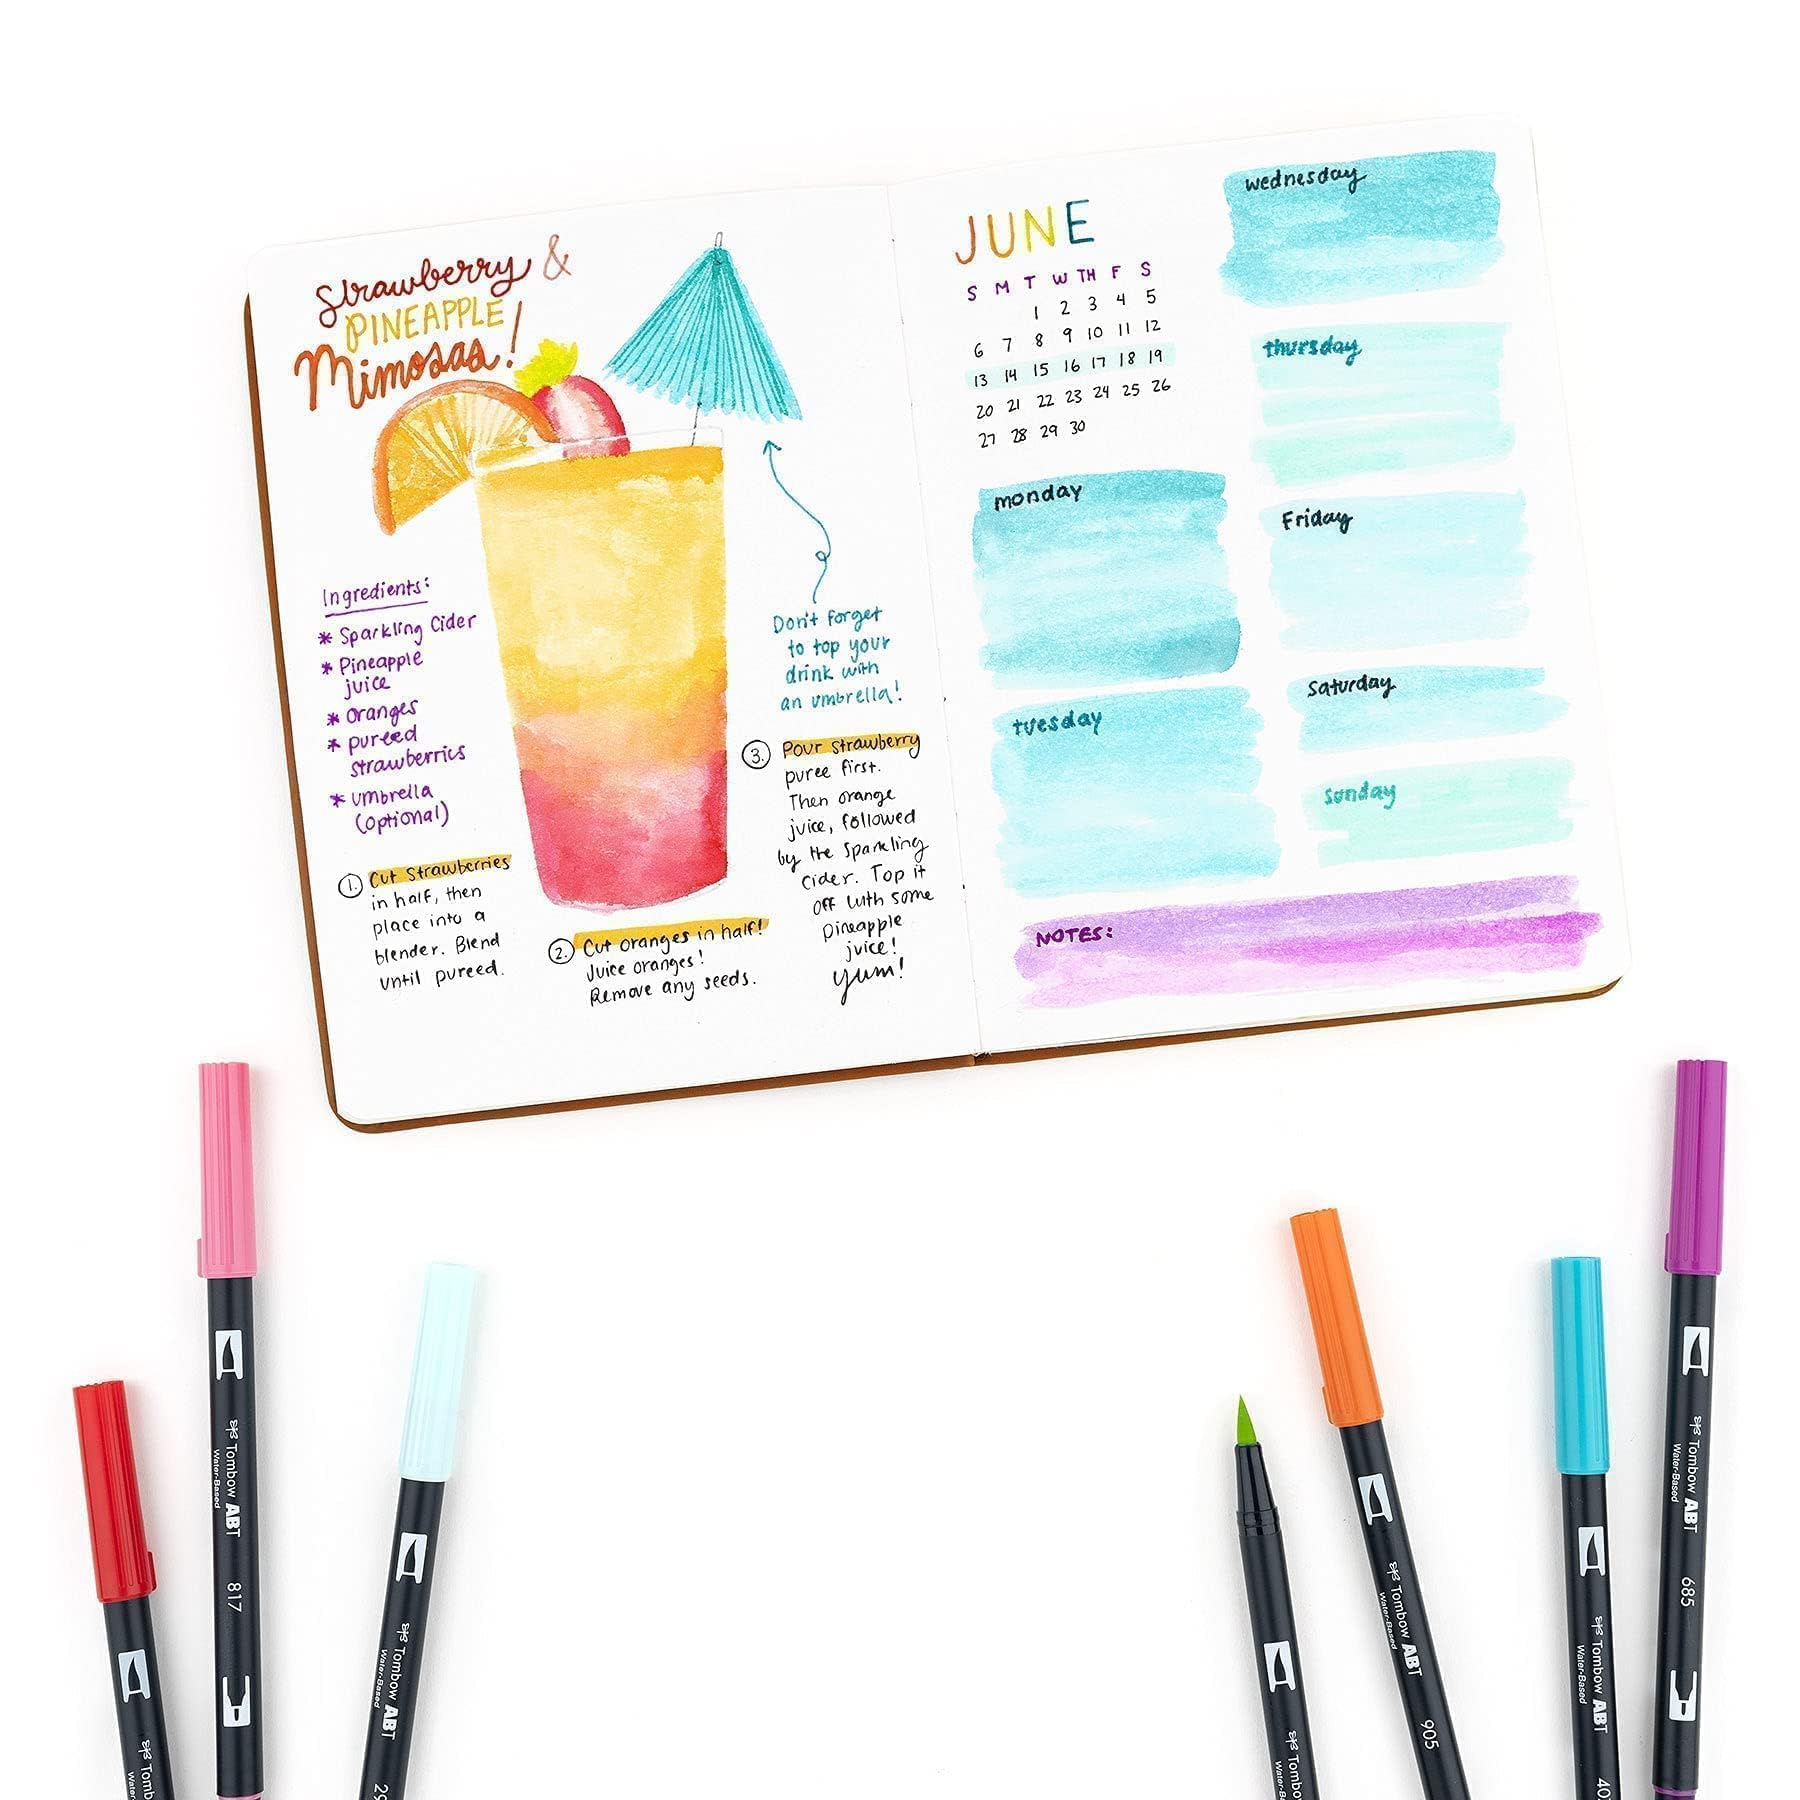 Strawberry &
PINEAPPLE
Mimosas!
Ingredients:
* Sparkling Cider
* Pineapple
juice
* oranges
* pureed
strawberries
* umbrella
(optional)
1. Cut Strawberries
in half, then
place into a
blender. Blend
until pureed.
2. Cut oranges in half!
Juice oranges!
Remove any seeds.
Don't forget
to top your
drink with
an umbrella!
3. Pour strawberry
puree first.
Then orange
juice, followed
by the Sparkling
Cider. Top it
off with some
pineapple
juice!
Yum!
JUNE
S M T W TH F S
1 2 3 4 5
6 7 8 9 10 11 12
13 14 15 16 17 18 19
20 21 22 23 24 25 26
27 28 29 30
monday
tuesday
wednesday
thursday
Friday
Saturday
Sunday
NOTES:
Tombow ABT
Water-Based
817
Tombow ABT
Water-Based
Tombow
Tombow ABT
Water-Based
905
Tombow ABT
Water-Based
Tombow ABT
Water-Based
685